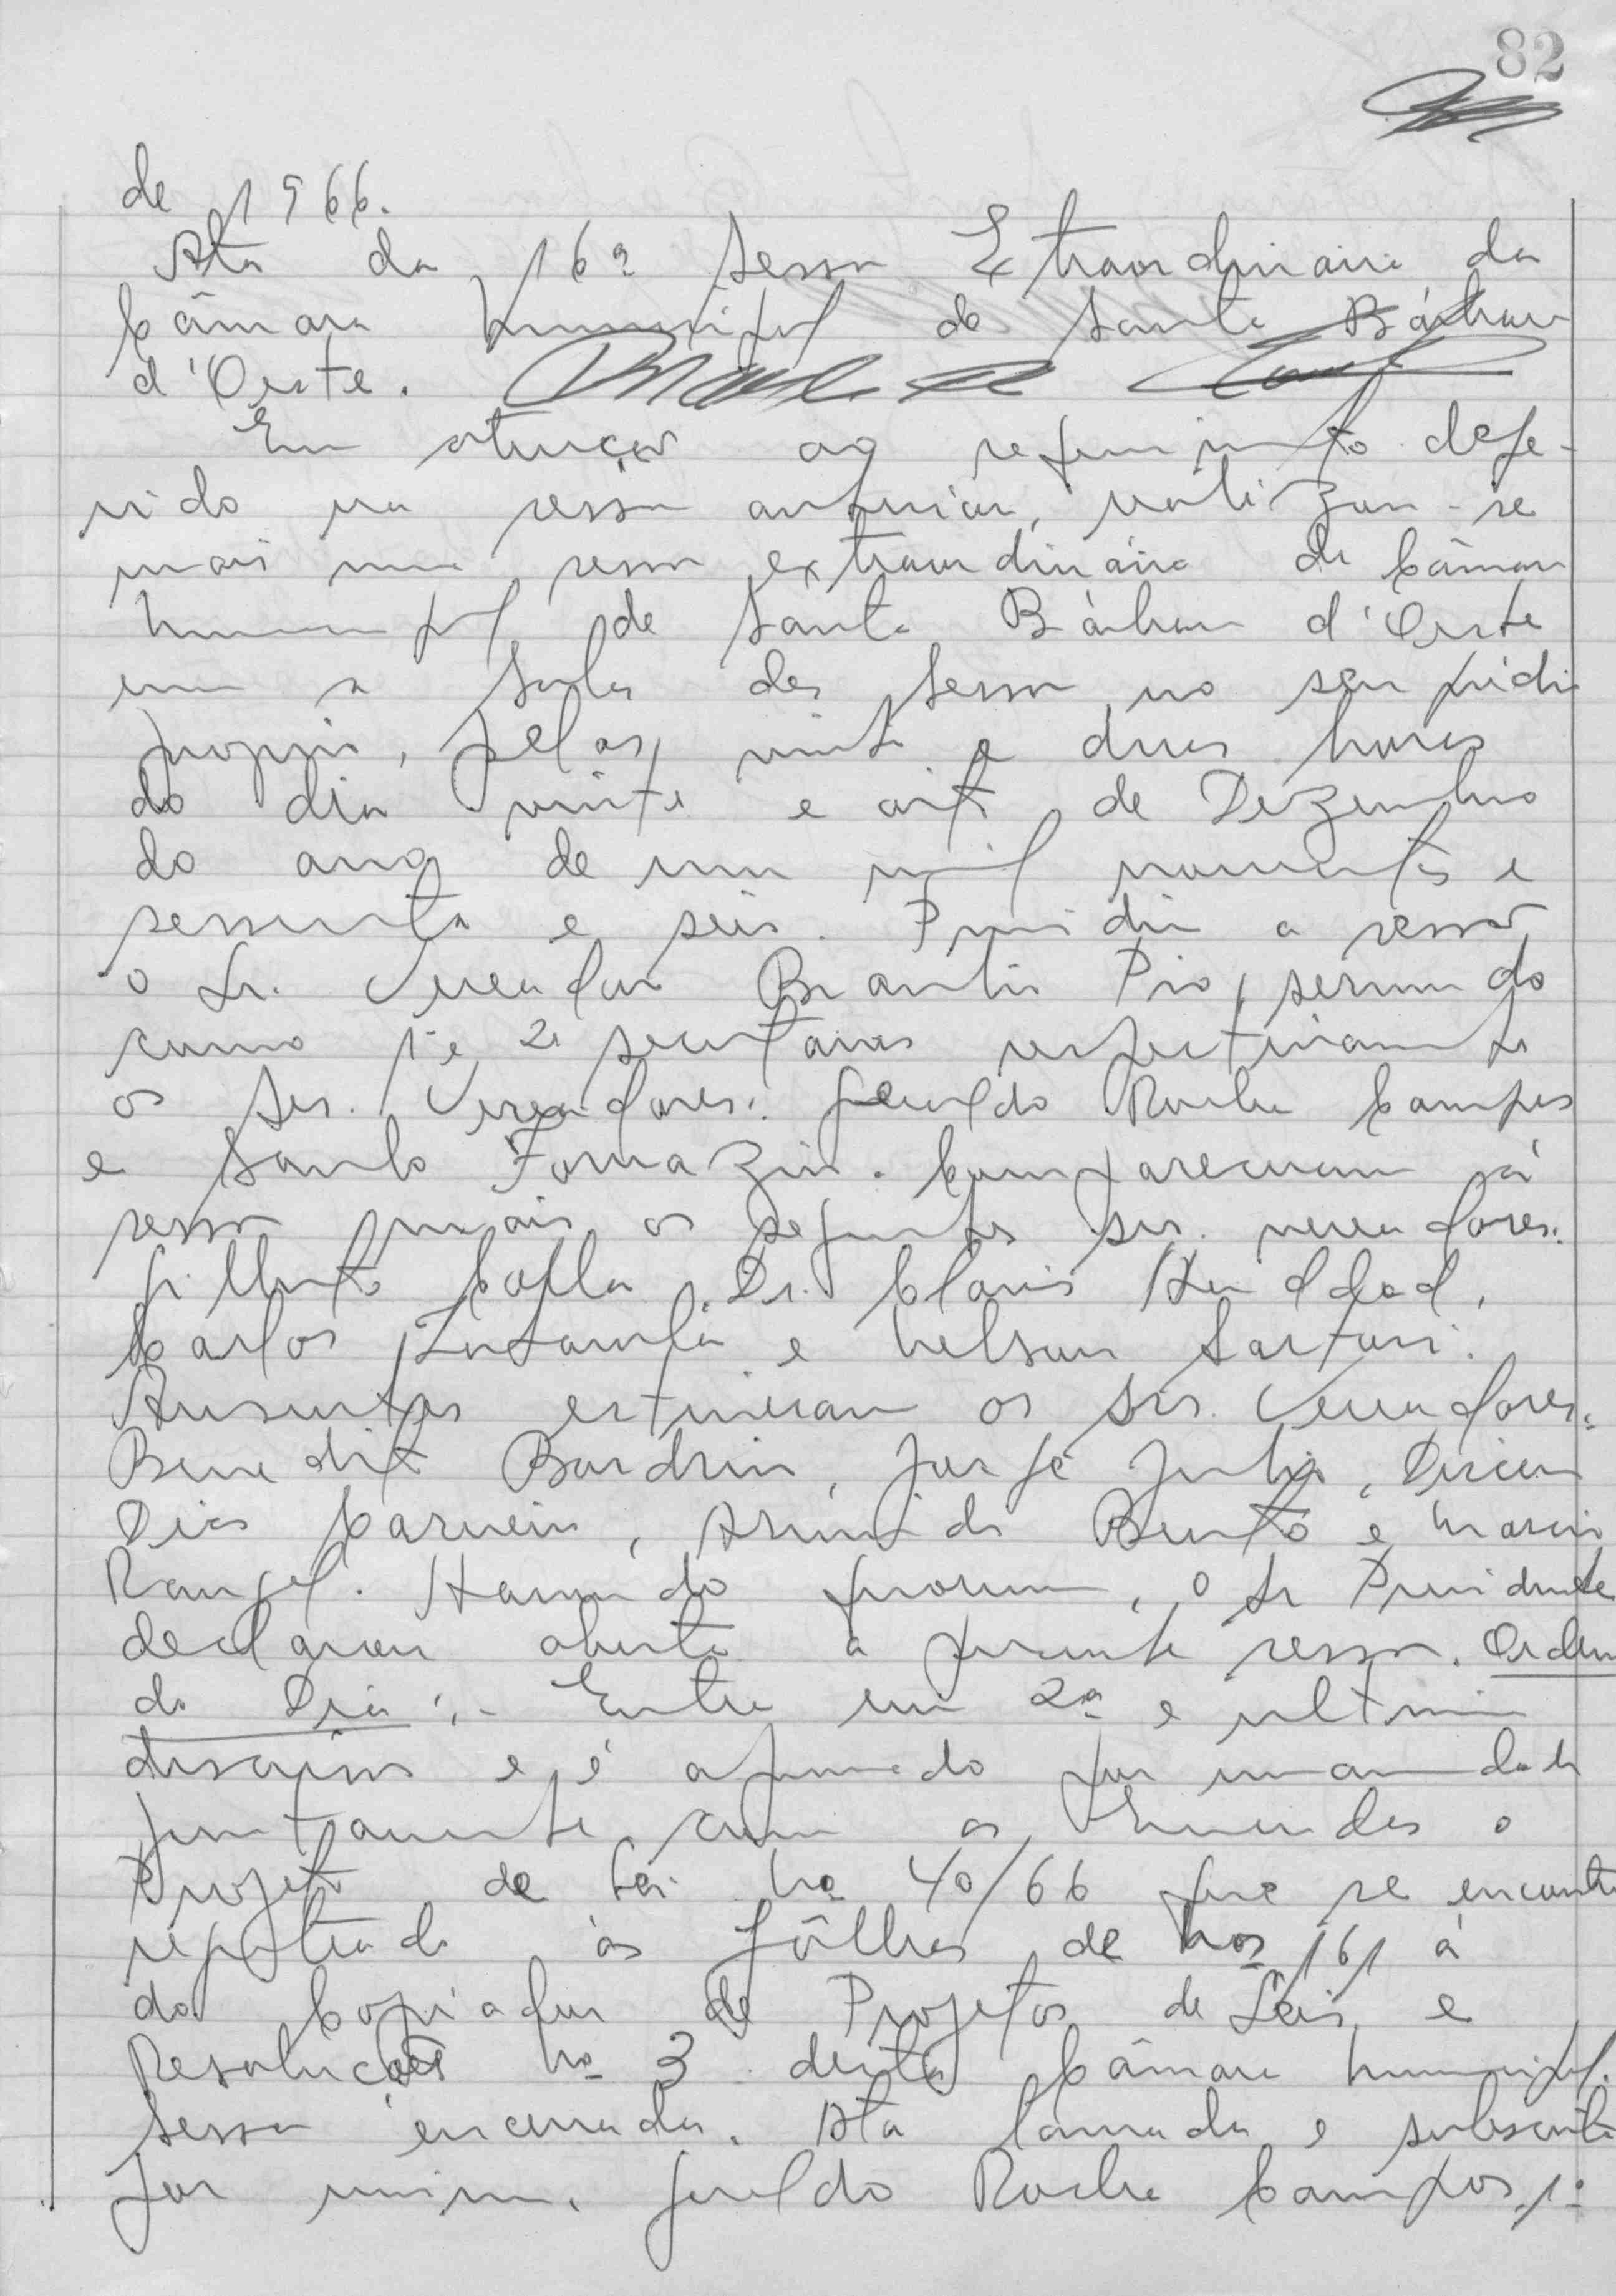 82
de 1966.
Ata da 16a Sessão Extraordinária da
Câmara Municipal de Santa Bárbara
d'Oeste.
Em atenção ao requerimento defe-
rido na sessão anterior, realizou-se
mais uma sessão extraordinária da Câmara
Municipal de Santa Bárbara d'Oeste
em a sala das Sessão no seu prédio
proprio, pelas vinte e duas horas
do dia vinte e oito de Dezembro
do ano de um mil novecentos e
sessenta e seis. Presidiu a sessão
o Sr. Vereador Braulio Pio, servindo
como 1º e 2º secretários respectivamente
os Srs. Vereadores: Geraldo Rocha Campos
e Santo Fornazin. Compareceram à
sessão mais os seguintes srs. vereadores:
Gilberto Dr. Clovis Haddad,
Carlos e Nelson Sartori.
Ausentes estiveram os srs. Vereadores:
Benedito Jorge Julio, Dirceu
Dias Carneiro, Bento e
Rangel. Havendo quorum, o Sr Presidente
declarou aberta a presente sessão. Ordem
do Dia:- Entra em 2a e ultima
discussão e é aprovado por unanimidade
juntamente com as Emendas o
Projeto de Lei Nº 40/66 que se encontra
registrado às fôlhas de Nos 161 à
do Copiador de Projetos de Leis e
Resoluções Nº 3 desta Câmara Municipal.
Sessão encerrada. Ata lavrada e subscrita
por mim, Geraldo Rocha Campos, 1º